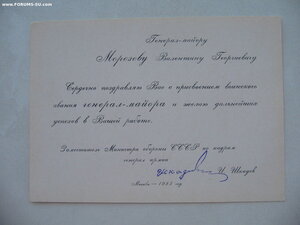 www.FORUMS-SU.com
Генерал-майору
Морозову Валентину Георгиевичу
Сердечно поздравляю Вас с присвоением воинского
звания генерал-майора и желаю дальнейших
успехов в Вашей работе.
Заместитель Министра обороны СССР по кадрам
генерал армии
И. Шкадов
Москва — 1985 год